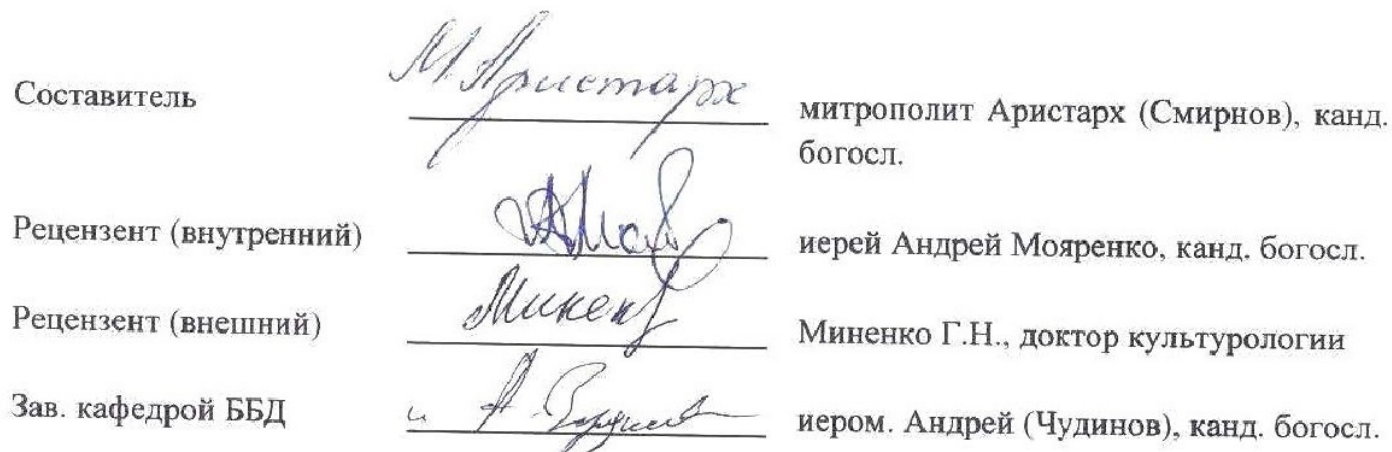 Составитель М. Аристарх митрополит Аристарх (Смирнов), канд.
богосл.
Рецензент (внутренний) иерей Андрей Мояренко, канд. богосл.
Рецензент (внешний) Миненко Миненко Г.Н., доктор культурологии
Зав. кафедрой ББД иером. Андрей (Чудинов), канд. богосл.